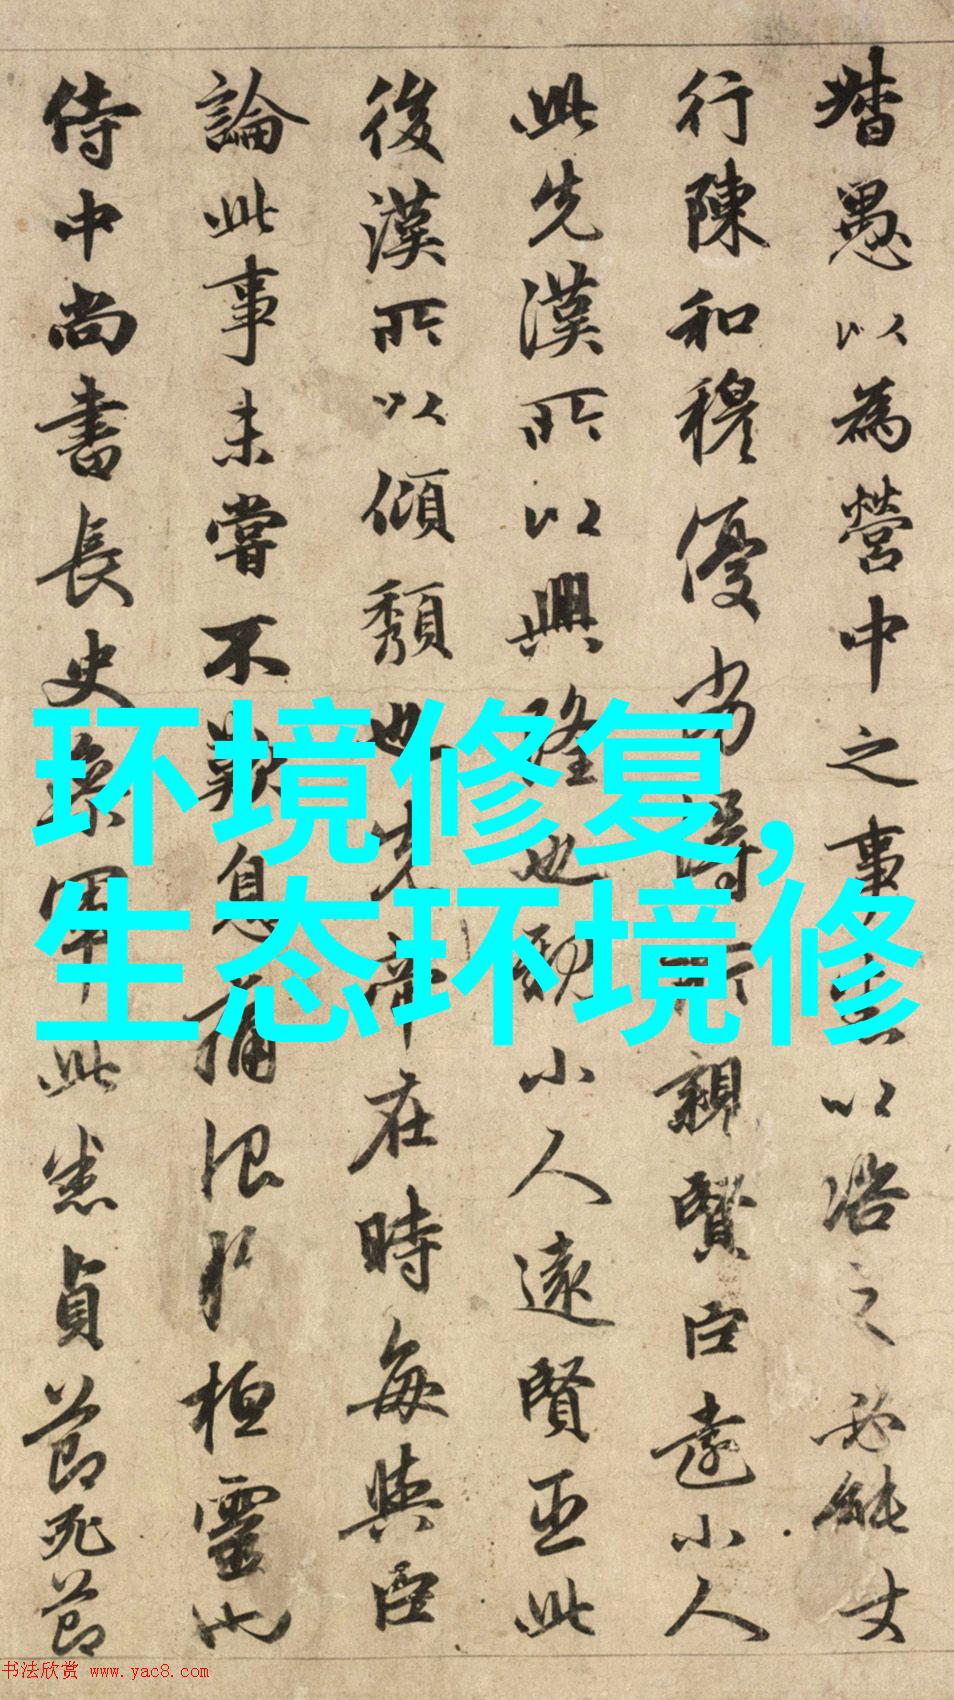 督愚以為營中之事悉以咨之必能丈
行陳和穆優劣得所親賢臣遠小人
此先漢所以興隆也小人遠賢臣此
後漢所以傾頹也先帝在時每與臣
論此事未嘗不歎息痛恨於桓靈也
侍中尚書長史參軍此悉貞節死節
环境修复,
生态环境修
书法欣赏 www.yac8.com